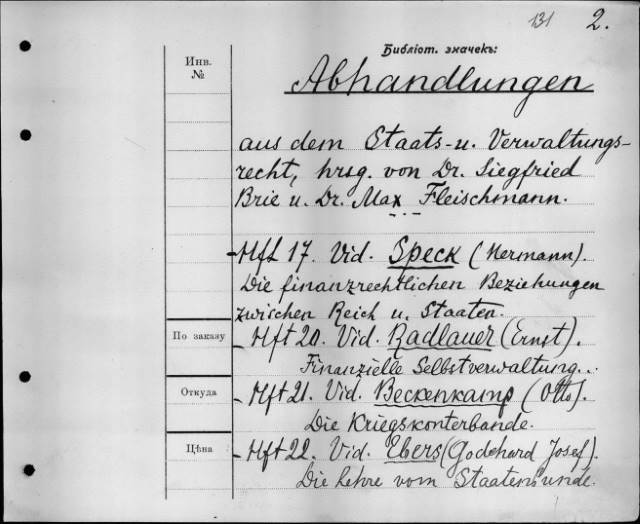 131 2.
Библіот. значекъ:
Инв.
№
Abhandlungen
aus dem Staats- u. Verwaltungs-
recht, hrsg. von Dr. Siegfried
Brie u. Dr. Max Fleischmann.
- Hft 17. Vid. Speck (Hermann).
Die finanzrechtlichen Beziehungen
zwischen Reich u. Staaten.
По заказу
- Hft 20. Vid. Radlauer (Ernst).
Finanzielle Selbstverwaltung..
Откуда
- Hft 21. Vid. Beckenkamp (Otto).
Die Kriegskonterbande.
Цѣна
- Hft 22. Vid. Ebers (Godehard Josef).
Die Lehre vom Staatenbunde.